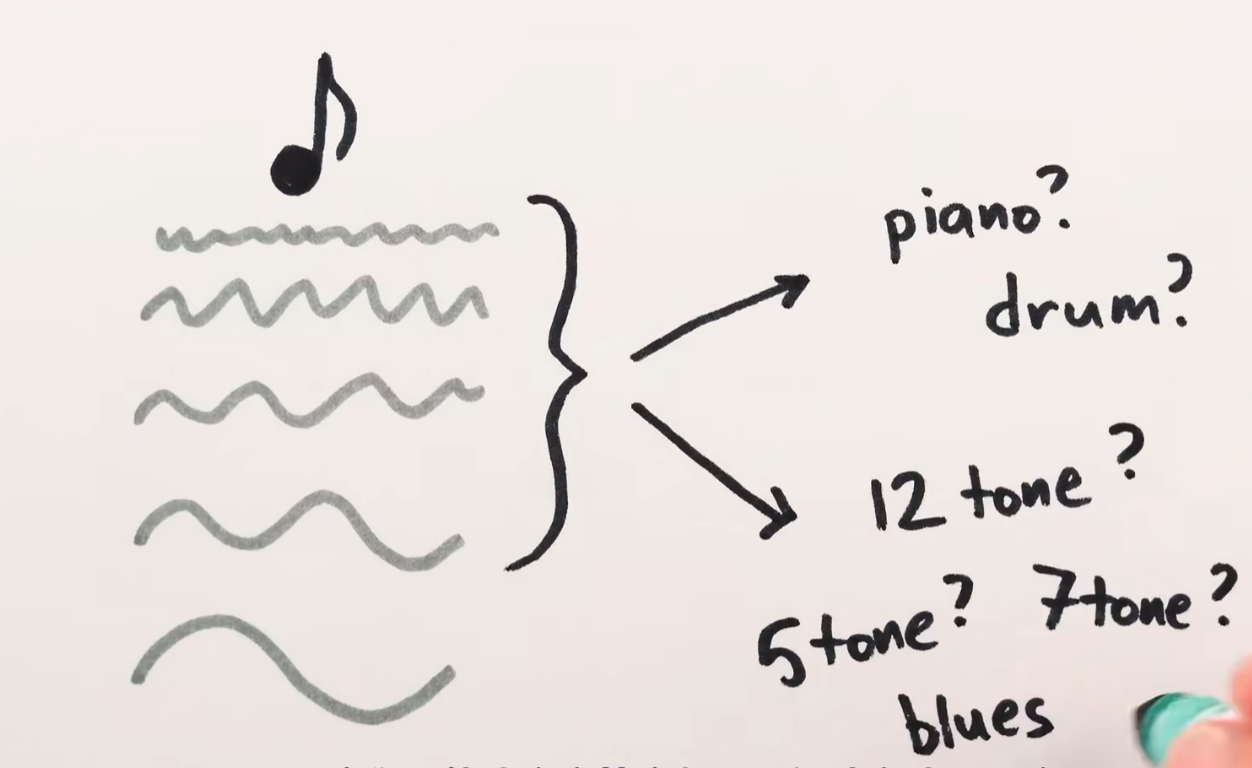 piano?
drum?
12 tone?
5 tone? 7 tone?
blues